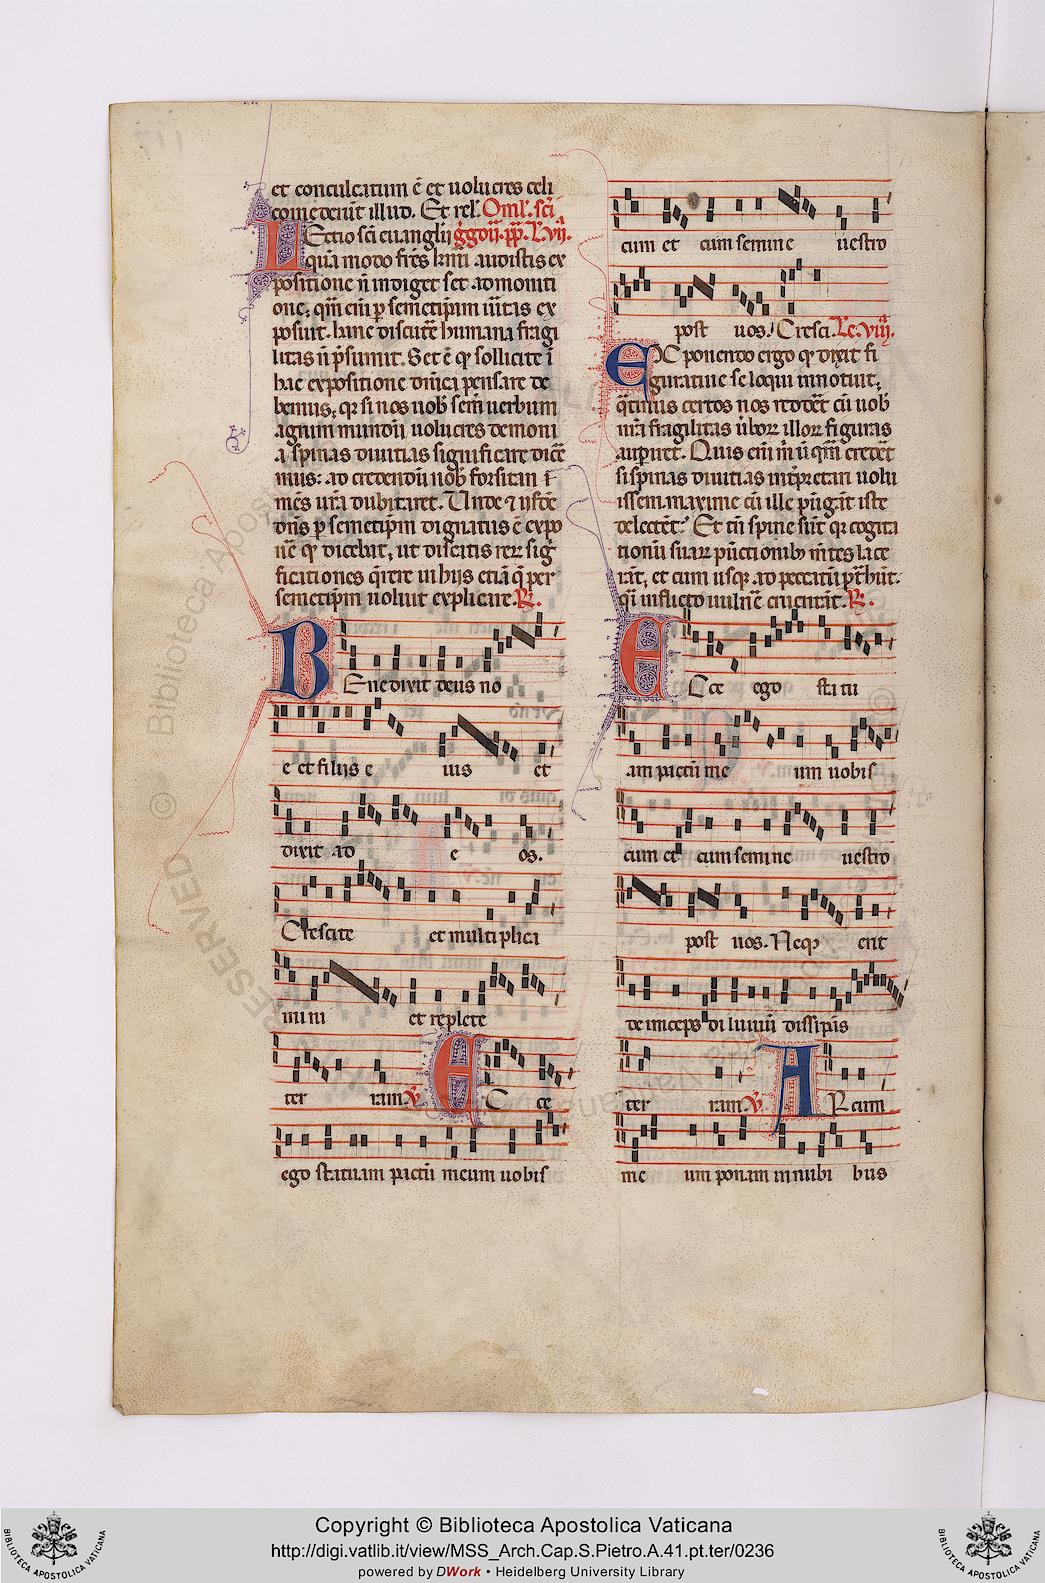 et conculcatum ē et uolucres celi
comederūt illud. Et rel'. Oml'. sc̄i
Lectio sc̄i euanglij g̓gorij. pp. L'. vij.
qua modo fr̄es km̄i audistis ex
positione n̄ indiget set admoniti
one; qm̄ eni p semetipm ueritas ex
posuit. hanc discutē humana fragi
litas n̄ p̄sumit. Set ē q sollicite ī
hac expositione dn̄ica pensare de
bemus; q si nos uob semē uerbum
agrum mundū uolucres demoni
a spinas diuitias significare dicē
mus: ad credendū nob forsitan ī
mēs ur̄a dubitaret. Unde ⁊ isdē
dn̄s p semetipm dignatus ē expo
nē q dicebat, ut discatis reꝝ sig
ficationes q̄rere in hijs etiā q̄ per
semetipm noluit explicare. ℟.
Benedixit deus no
e et filijs e ius et
dixit ad e os.
Crescite et multiplica
mi ni et replete
ter ram ℣. Ec ce
ego statuam pactū meum uobis
cum et cum semine uestro
post uos. Cresci. Le. viij.
Exponendo ergo q dixit fi
guratiue se loqui innotuit;
q̄tinus certos nos reddēt cū uob
nr̄a fragilitas ūboꝝ illoꝝ figuras
aꝑiret. Quis eni m̄ ūqm̄ credēt
si spinas diuitias int̄pretari uolu
issem. maxime cū ille pūgāt iste
delectēt? Et tn̄ spine sūt q cogita
tionū suaꝝ pūctionib m̄tes lace
rāt, et cum usq ad peccatū pt̄hūt.
q̄i inflicto uulnē cruentāt. ℟.
Ecce ego statu
am pactū me um uobis
cum et cum semine uestro
post uos. Neq erit
deinceps diluuiū dissipās
ter ram ℣. Arcum
me um ponam in nubi bus
RESERVED © Biblioteca Apostolica Vaticana
BIBLIOTECA APOSTOLICA VATICANA
Copyright © Biblioteca Apostolica Vaticana
http://digi.vatlib.it/view/MSS_Arch.Cap.S.Pietro.A.41.pt.ter/0236
powered by DWork • Heidelberg University Library
BIBLIOTECA APOSTOLICA VATICANA